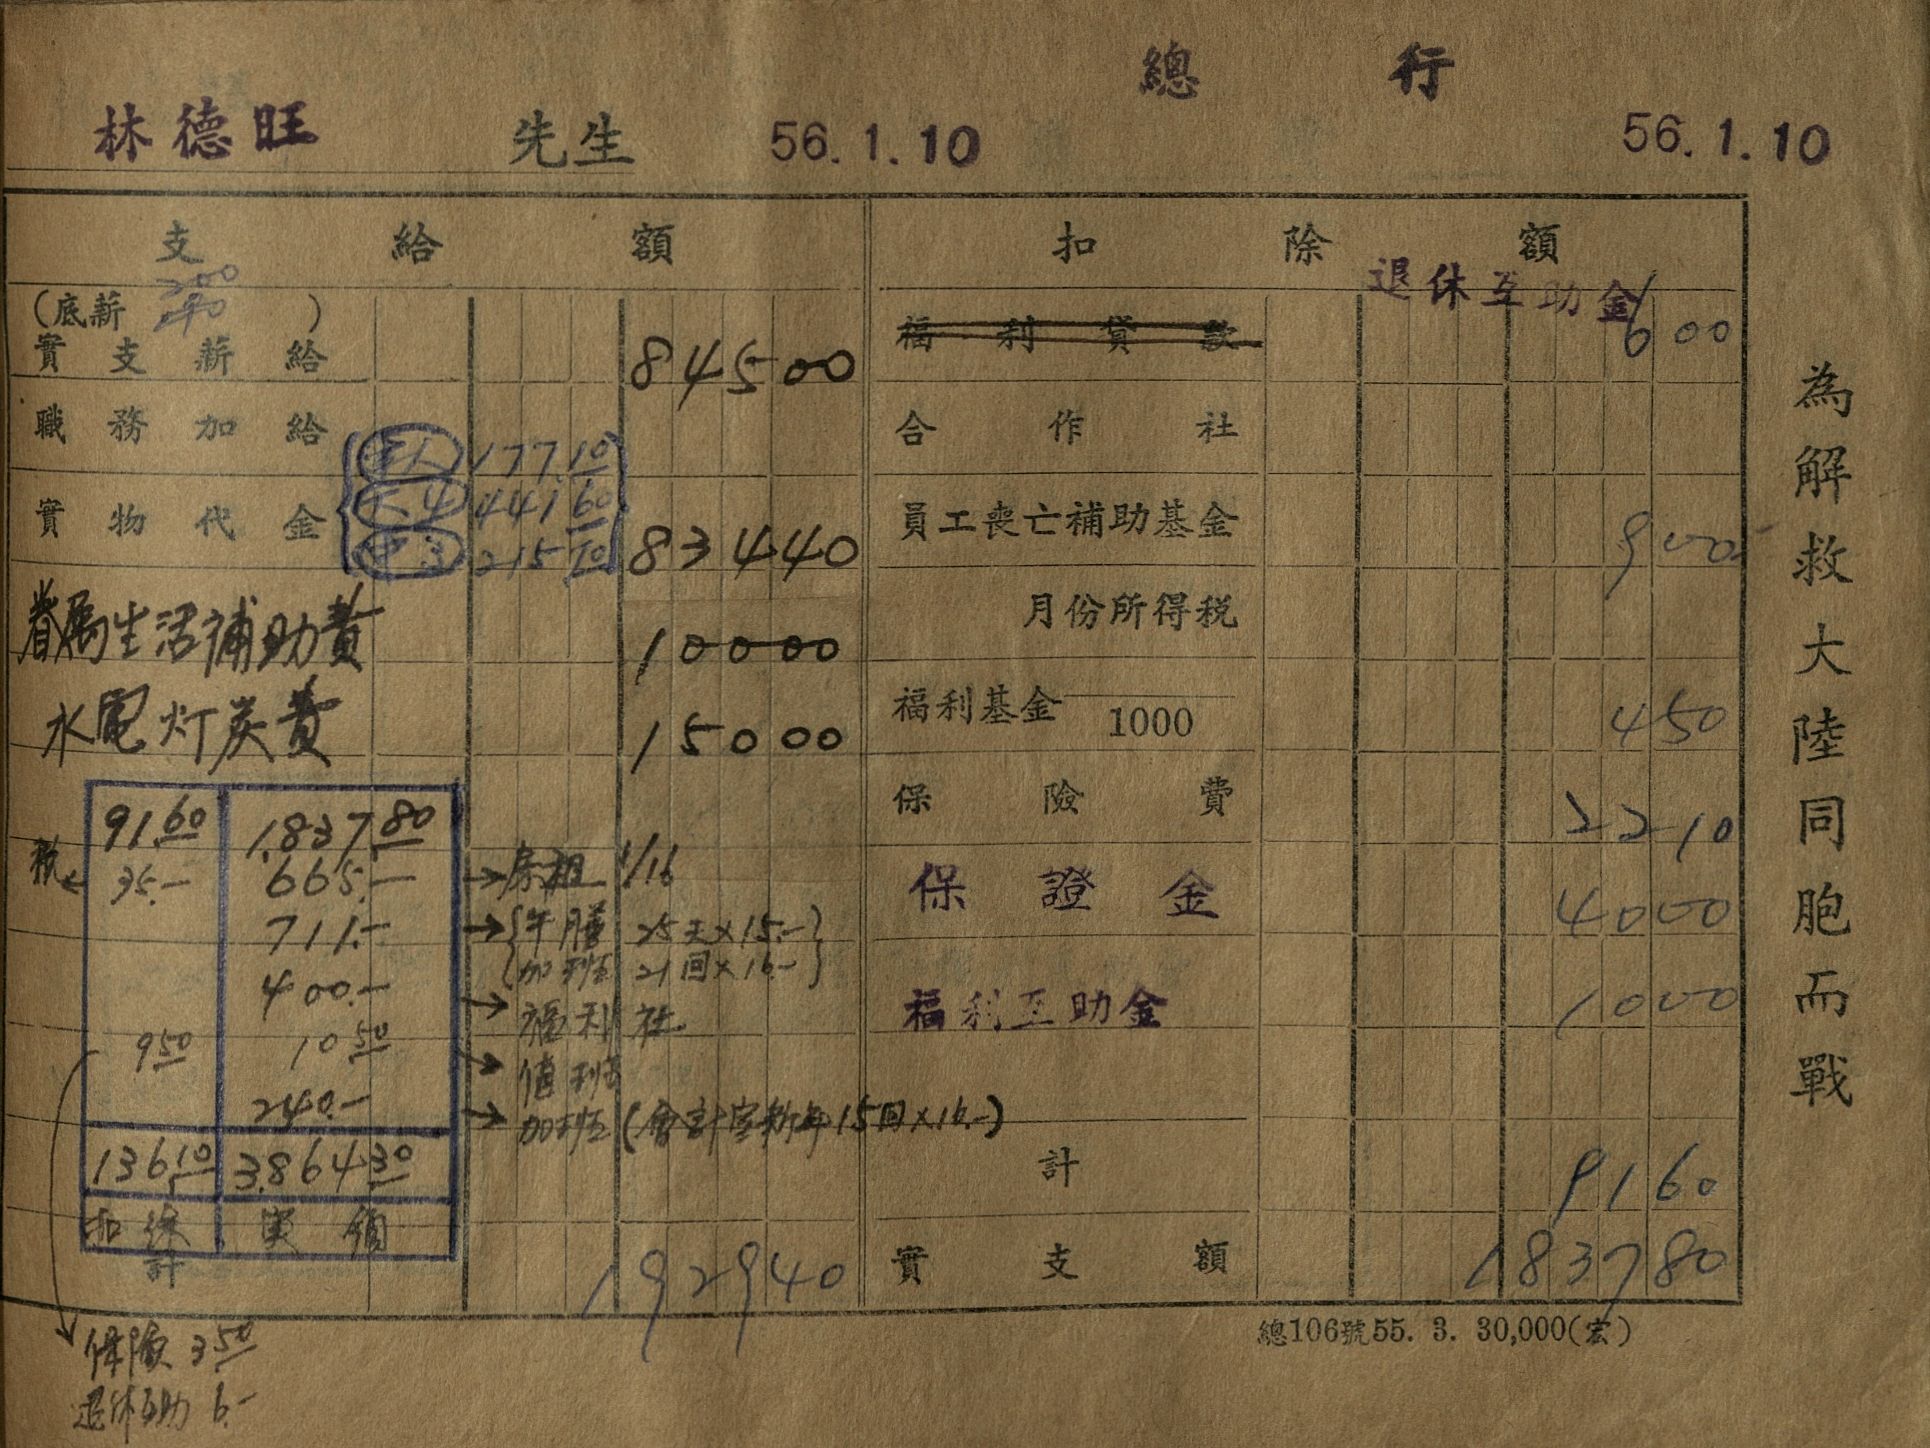 總行
林德旺 先生 56.1.10 56.1.10
支給額
扣除額
(底薪 200 240 )
實支薪給 845 00
職務加給
177.10
實物代金 大4 441.60 834 40
215.70
眷屬生活補助費 100 00
水電灯炭費 150 00
91.60 1,837.80
稅 ← 35.- 665.- → 房租 1/16
711.- → {午膳 25天×15.-}
{加班 21回×16.-}
400.- → 福利社
9.50 10.50 → 值班
240.- → 加班 (會計室新年15回×16.-)
136.10 3,864.30
扣除計 実領
1929 40
保險 3.50
退休互助 6.-
退休互助金 6 00
福利貸款
合作社
員工喪亡補助基金 9 00
月份所得稅
福利基金 1000 4 50
保險費 22 10
保證金 40 00
福利互助金 10 00
計 91 60
實支額 1837 80
總106號55. 3. 30,000(宏)
為解救大陸同胞而戰